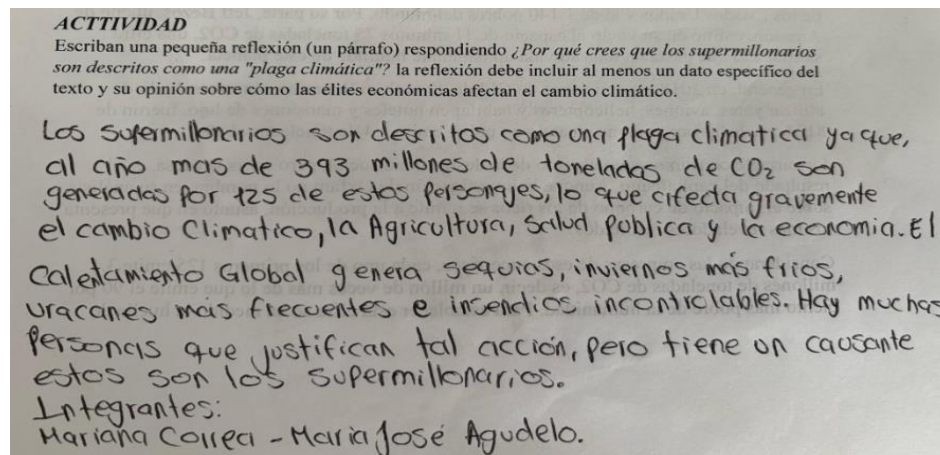 ACTTIVIDAD
Escriban una pequeña reflexión (un párrafo) respondiendo ¿Por qué crees que los supermillonarios
son descritos como una "plaga climática"? la reflexión debe incluir al menos un dato específico del
texto y su opinión sobre cómo las élites económicas afectan el cambio climático.
Los supermillonarios son descritos como una plaga climatica ya que,
al año mas de 393 millones de toneladas de CO₂ son
generadas por 125 de estos personajes, lo que afecta gravemente
el cambio Climatico, la Agricultura, Salud publica y la economia. El
Calentamiento Global genera sequias, inviernos más frios,
uracanes más frecuentes e insendios incontrolables. Hay muchas
Personas que justifican tal acción, pero tiene un causante
estos son los supermillonarios.
Integrantes:
Mariana Correa - Maria José Agudelo.